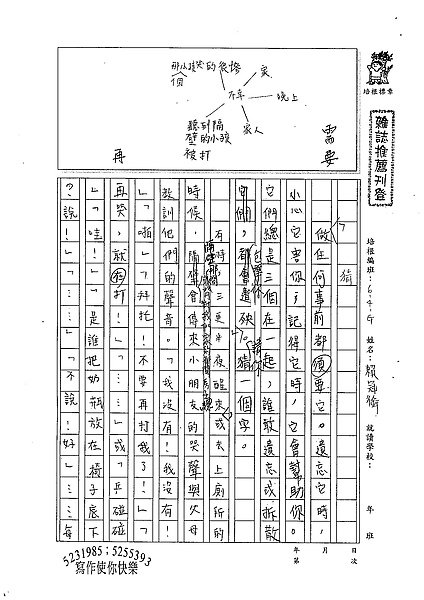 培根標章
雜誌推薦刊登
培根編班：6-4-G 姓名： 就讀學校： 年 班
年 月 日
第 次
那小孩哭的很慘
個
家
不幸
晚上
家人
聽到隔
壁的小孩
被打
需要
再
猜
做任何事前都須要它。遺忘它時，
小心它害你！記得它時，它會幫助你。
它們總是三個在一起，誰敢遺忘或拆散
它們，都會遭殃。猜 一個字。
有時三更半夜醒來或去上廁所的
時候，隔壁會傳來小朋友的哭聲與父母
教訓他們的聲音。「我沒有！我沒有！
」「啪」「拜託！不要再打我了！」「
再哭，就 打！」「……」或「乒碰碰
」「哇！」「是誰把奶瓶放在椅子底下
？說！」「……」「不說！好」……每
5231985；5255393
寫作使你快樂